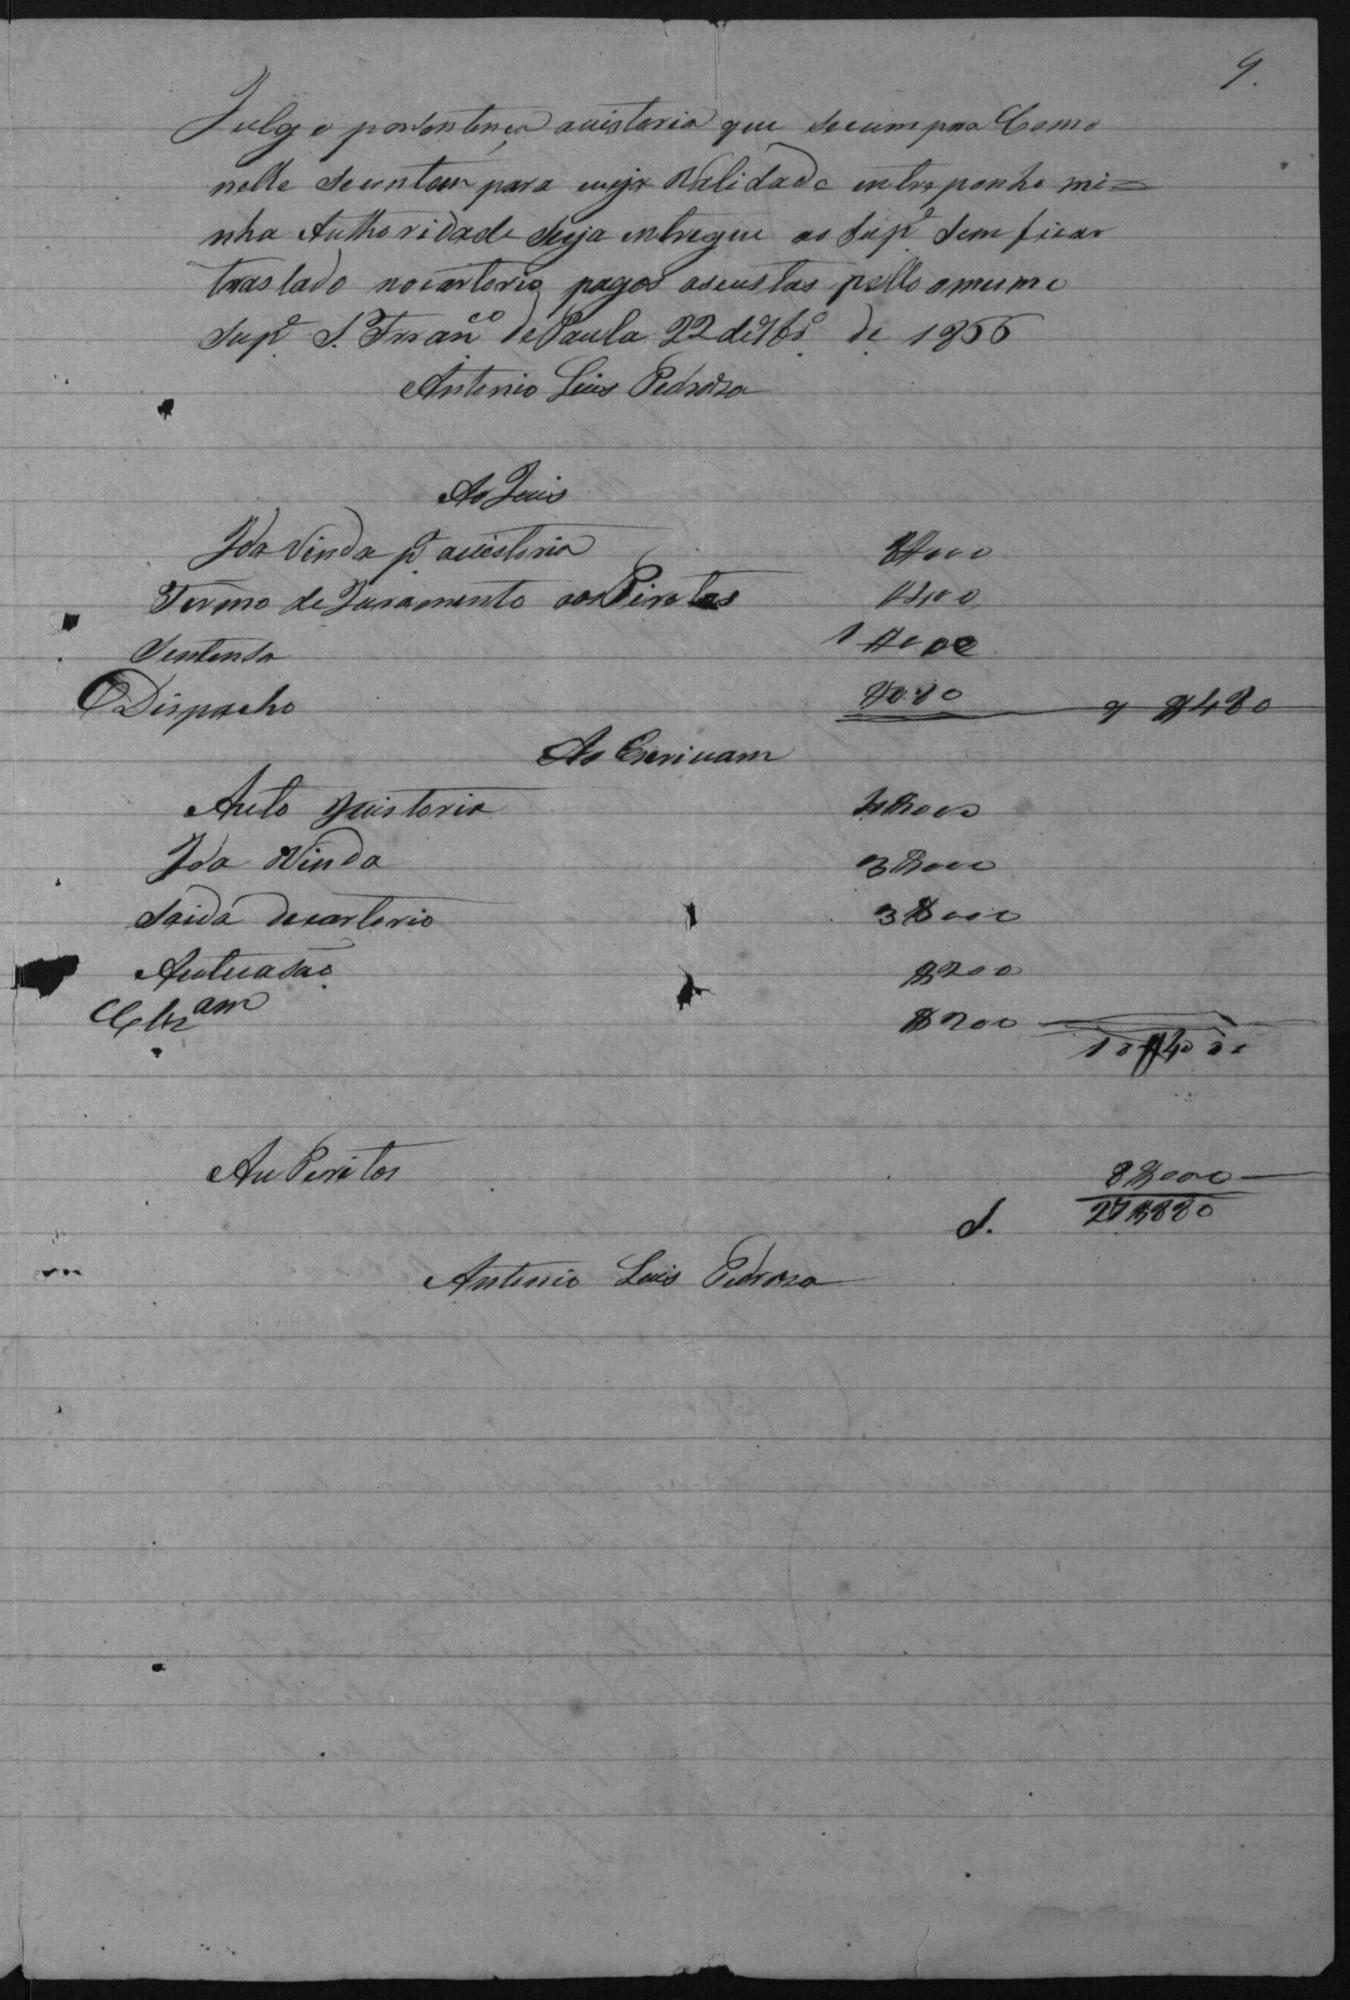 9.
Julgo porsentença avistoria que secumpra Como
nelle secontem para cuja Validade entreponho mi=
nha Authoridade seja entregue ao Supe sem ficar
traslado nocartorio pagos ascustas pello omesmo
Supe S. Franco de Paula 22 de 7bro de 1866
Antonio Luis Pedroza
Ao Juis
Ida Vinda pa avistoria
Termo de Juramento aos Piritos $400
Sentensa 1$000
Dispacho $080 9$480
Ao Escrivam
Auto Vistoria 4$000
Ida Vinda 3$000
Saida docartorio 3$000
Autuasão $200
$200
10$400
Au Peritos 8$000
S. 27$880
Antonio Luis Pedroza